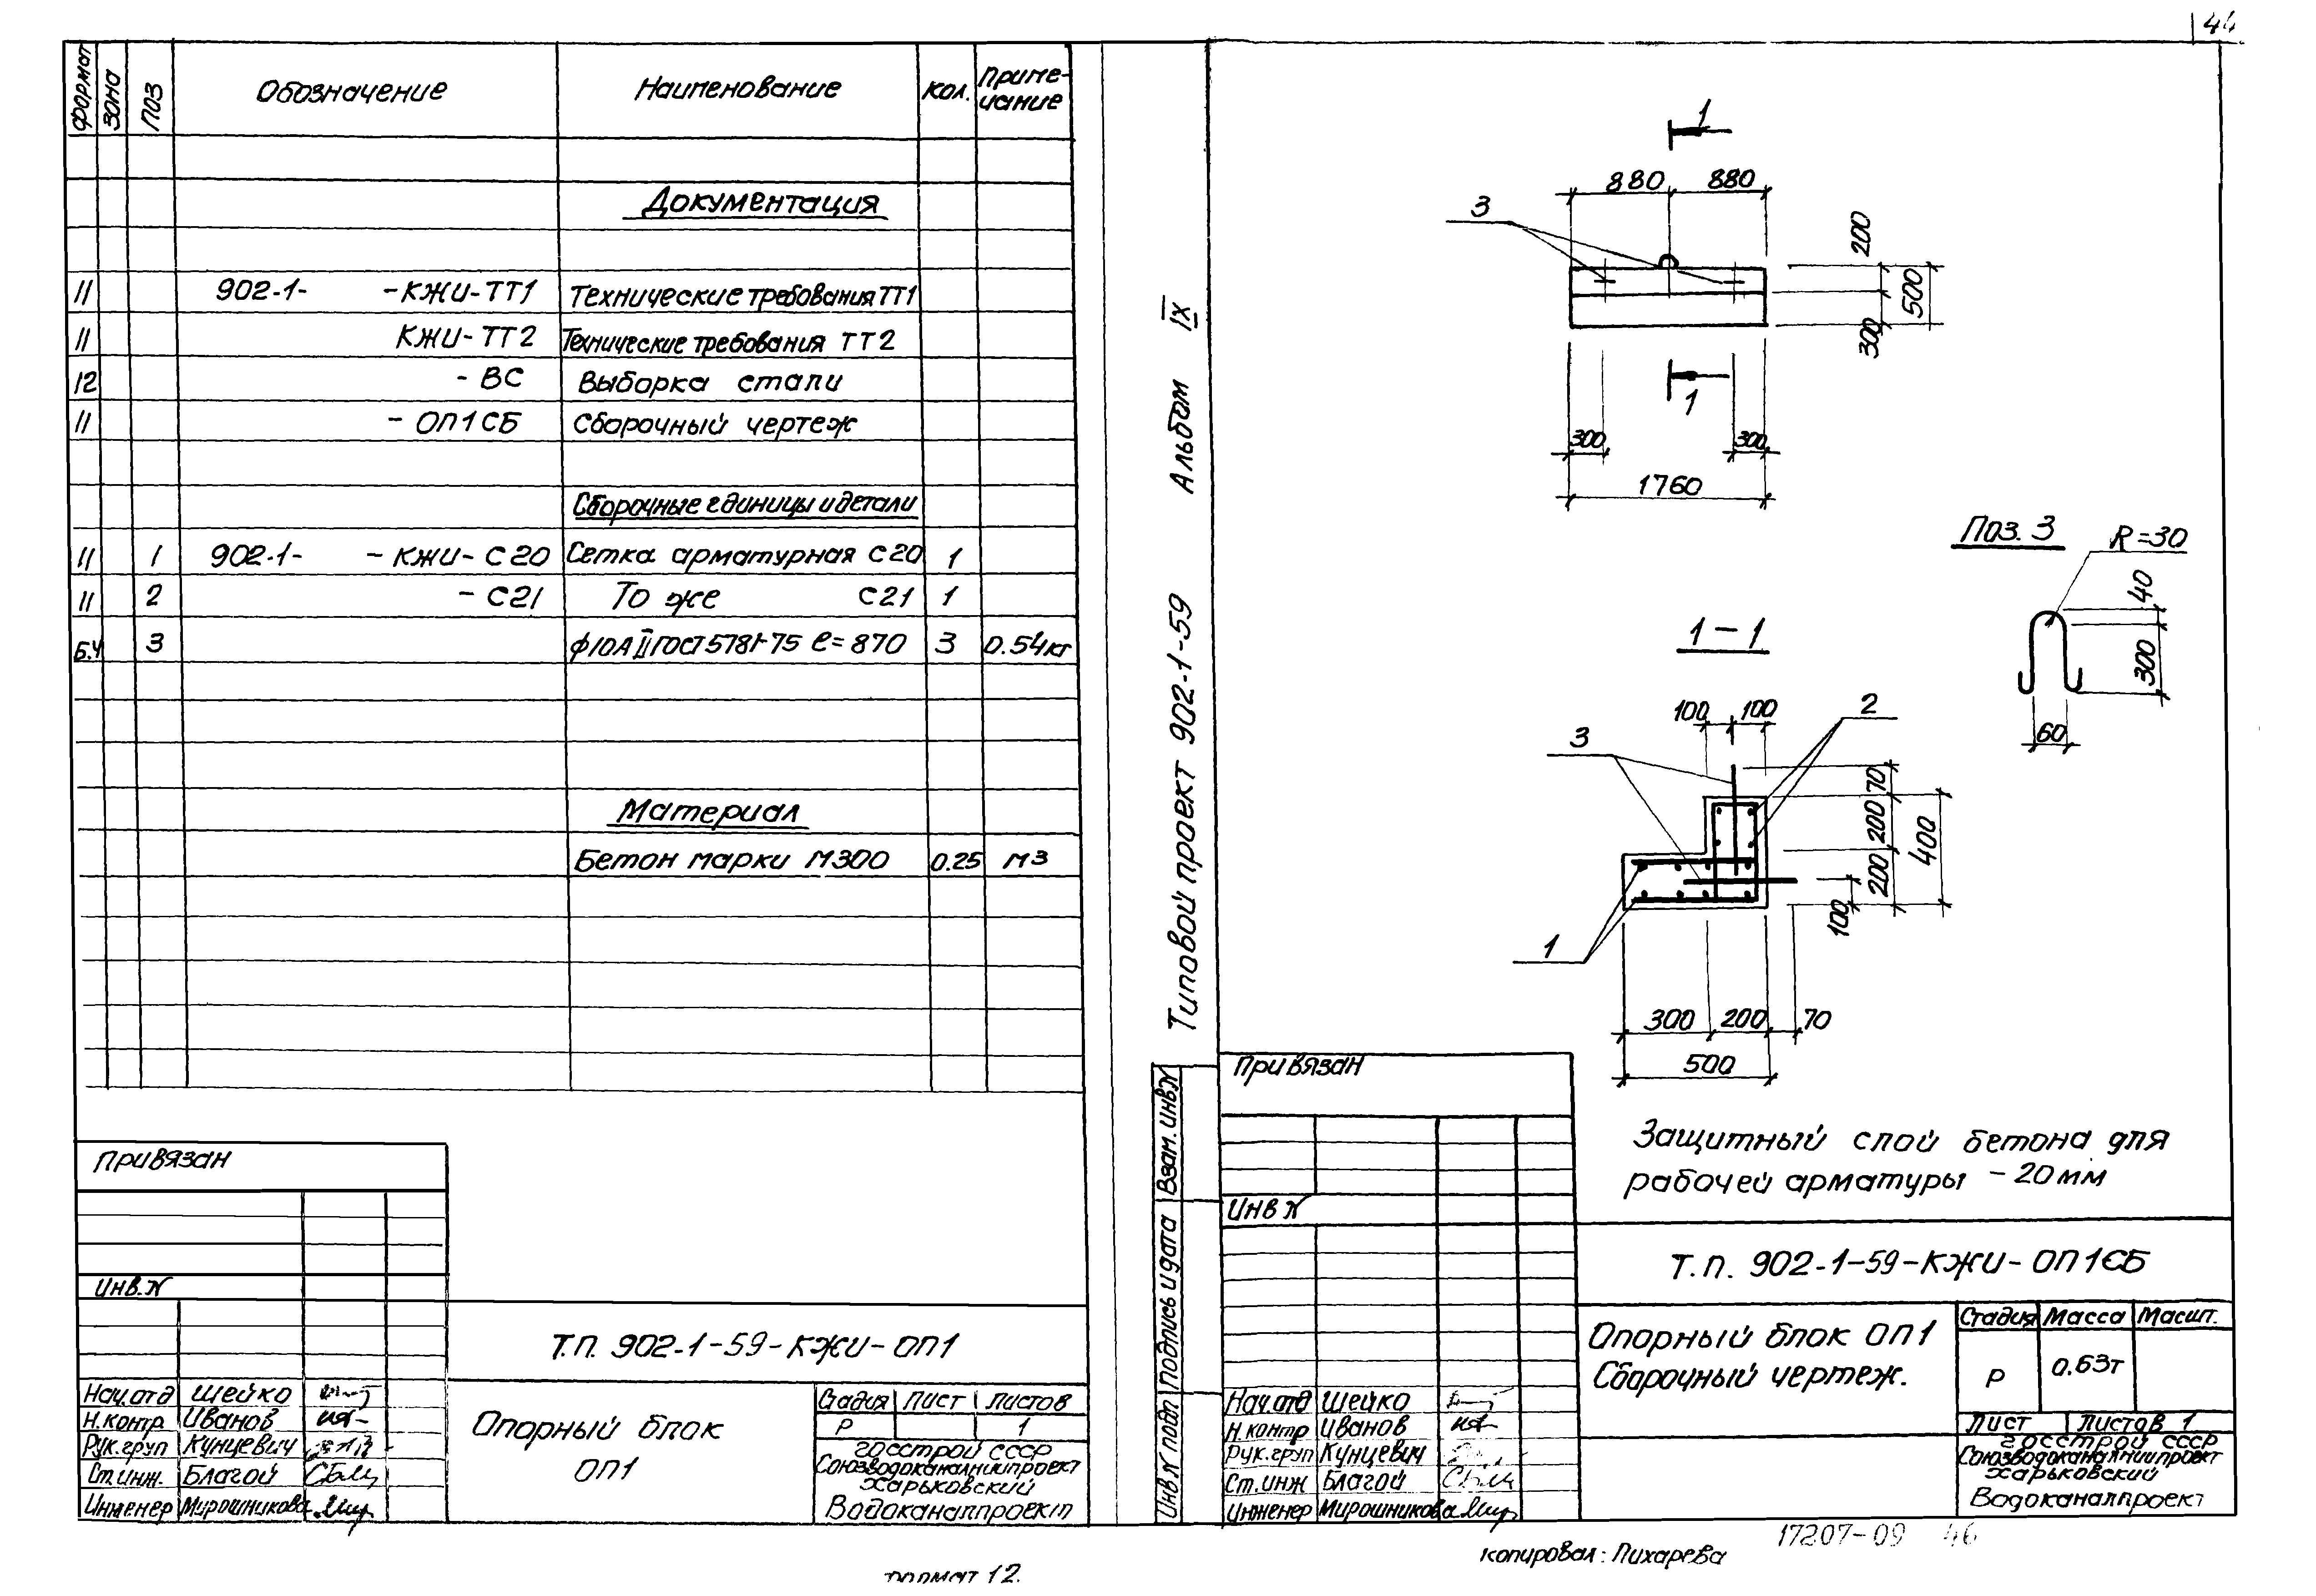 44
формат зона поз Обозначение Наименование кол. Приме-
чание
Документация
11 902-1- -КЖИ-ТТ1 Технические требования ТТ1
11 КЖИ-ТТ2 Технические требования ТТ2
12 -ВС Выборка стали
11 -ОП1СБ Сборочный чертеж
Сборочные единицы и детали
11 1 902-1- -КЖИ-С20 Сетка арматурная С20 1
11 2 -С21 То же С21 1
Б.Ч 3 ф10АII ГОСТ5781-75 ℓ=870 3 0.54кг
Материал
Бетон марки М300 0.25 м3
Привязан
Инв.N
Т.П. 902-1-59-КЖИ-ОП1
Нач.отд Шейко
Н.контр Иванов
Рук.груп Кунцевич
Ст.инж. Благой
Инженер Мирошникова
Опорный блок
ОП1
Стадия Лист Листов
Р 1
Госстрой СССР
Союзводоканалниипроект
Харьковский
Водоканалпроект
формат 12.
Типовой проект 902-1-59 Альбом IX
Инв N подл Подпись и дата Взам.инв.N
1
880 880
3
200
500
300
1
300 300
1760
Поз. 3
R=30
40
300
60
1-1
100 100
2
3
70
200
400
200
100
1
300 200 70
500
Защитный слой бетона для
рабочей арматуры -20мм
Привязан
Инв N
Т.П. 902-1-59-КЖИ-ОП1СБ
Опорный блок ОП1
Сборочный чертеж.
Стадия Масса Масшт.
Р 0.63т
Лист Листов 1
Госстрой СССР
Союзводоканалниипроект
Харьковский
Водоканалпроект
Нач.отд Шейко
Н.контр Иванов
Рук.груп Кунцевич
Ст.инж Благой
Инженер Мирошникова
17207-09 46
Копировал: Лихарева